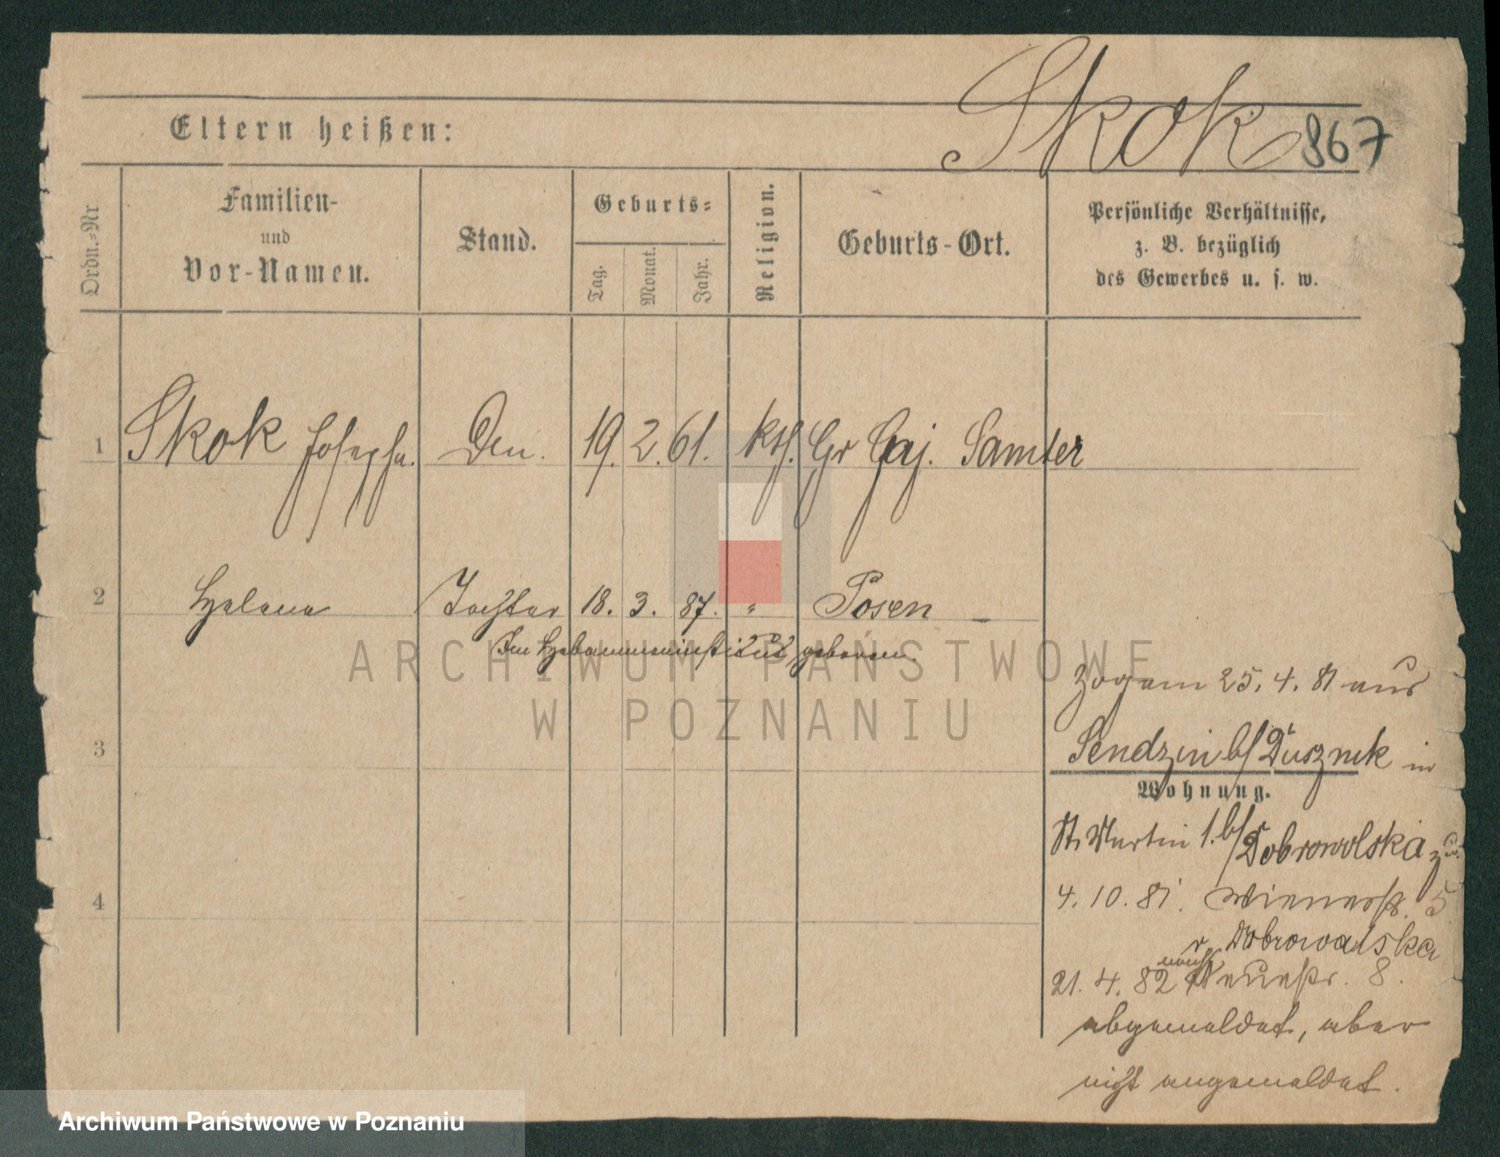 Skok 867
Eltern heißen:
Ordn.-Nr
Familien-
und
Vor-Namen.
Stand.
Geburts-
Tag.
Monat.
Jahr.
Religion.
Geburts-Ort.
Persönliche Verhältnisse,
z. B. bezüglich
des Gewerbes u. s. w.
1 Skok Josepha. Den. 19. 2. 61. kth. Gr Gaj. Samter
2 Helena Tochter 18. 3. 87. " Posen
Im Hebammeninstitut geboren.
3
4
Zog am 25. 4. 81 aus
Sendzin b/ Dusznik in
Wohnung.
St. Martin 1. b/ Dobrowolska
4. 10. 81. Wienerstr. 5
Dobrowolska
21. 4. 82 nach Neuestr. 8.
abgemeldet, aber
nicht angemeldet.
ARCHIWUM PAŃSTWOWE
W POZNANIU
Archiwum Państwowe w Poznaniu